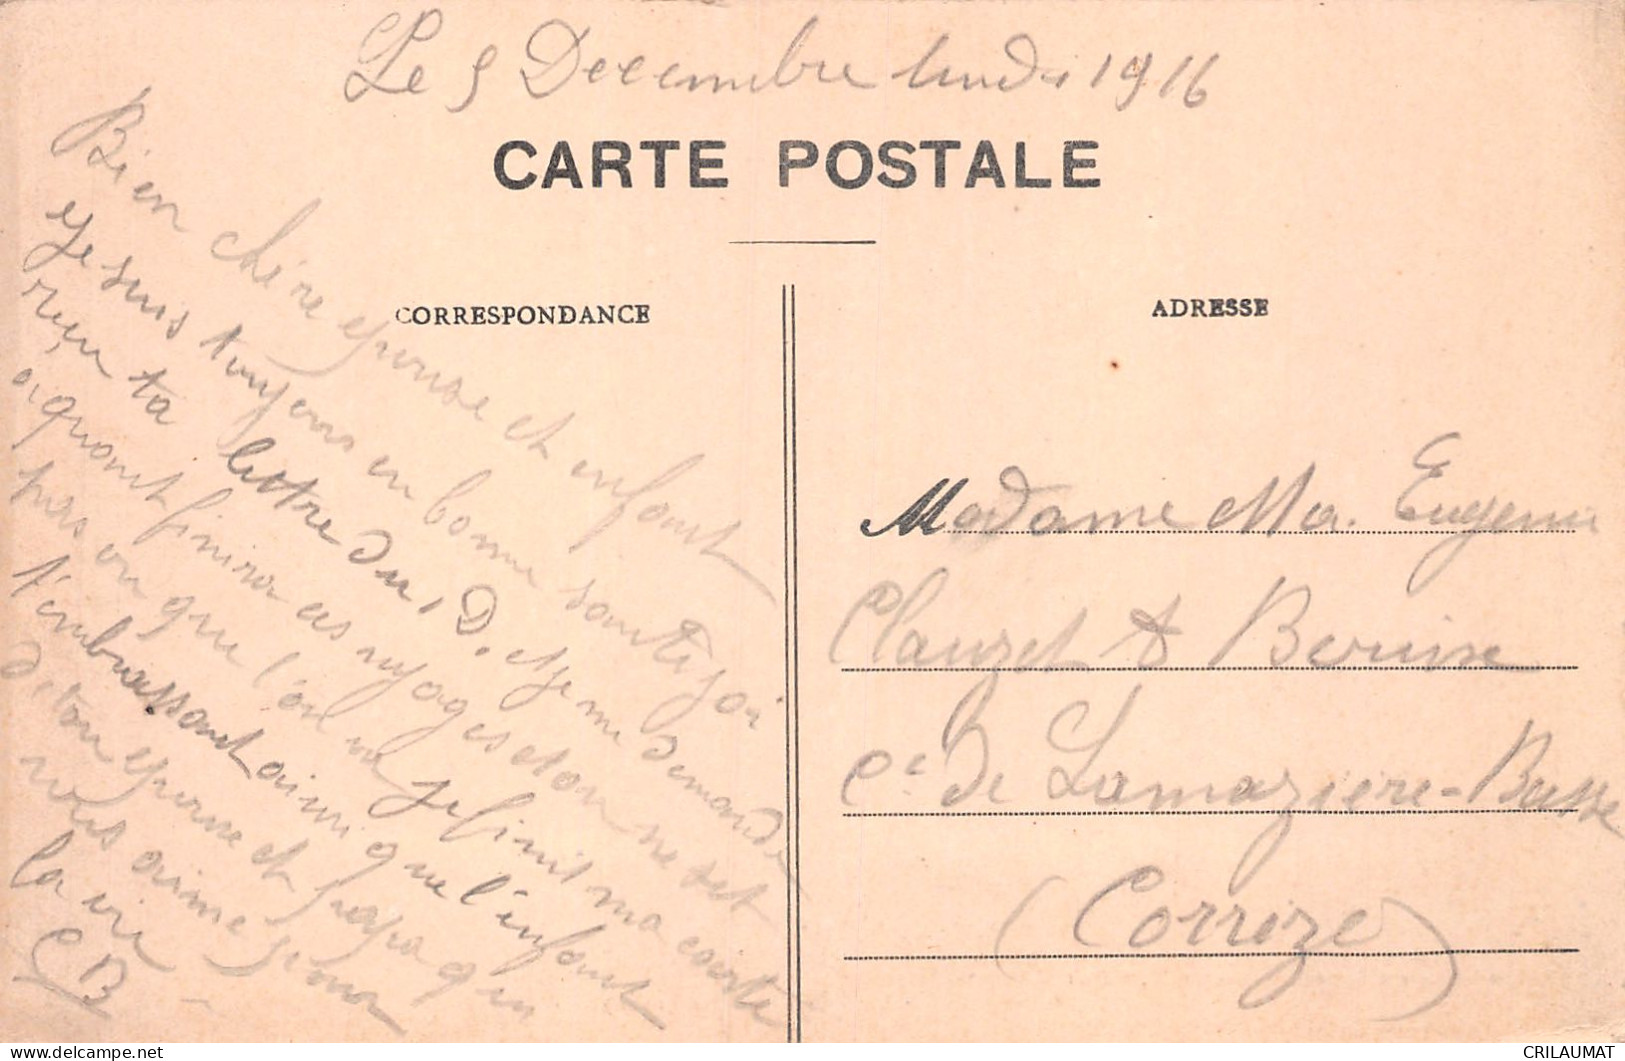 Le 5 Decembre lundi 1916
CARTE POSTALE
CORRESPONDANCE
ADRESSE
Bien chère epouse et enfant
Je suis toujours en bonne santé j'ai
reçu ta lettre du, D. et je me demande
quant finira ces voyages et on ne set
pas ou que l'on va je finis ma carte
t'embrassant ainsi que l'enfant
De ton epouse et papa qui
vous aime pour
la vie
CB
Madame Ma. Eugenie
Clauzet
C.e de Lamaziere-Basse
(Correze)
CRILAUMAT